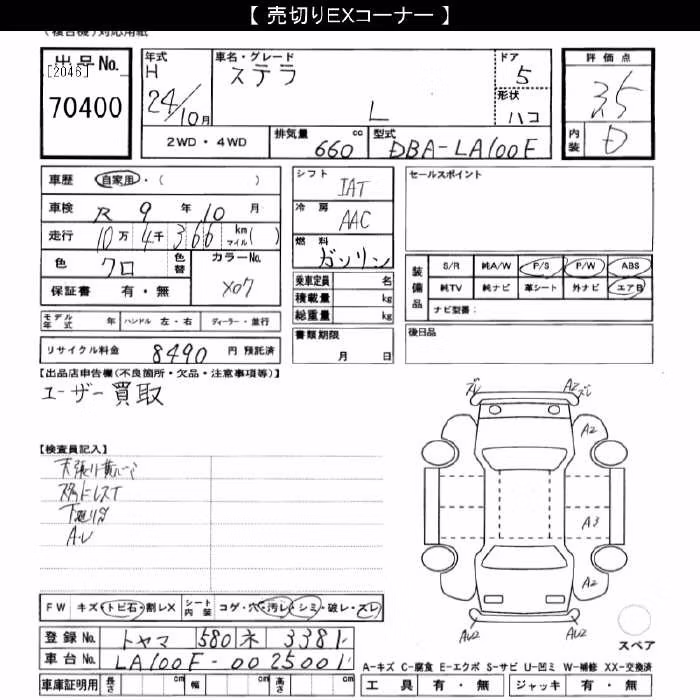 【 売切りEXコーナー 】
出品No.
[2046]
70400
年式
H
24/10月
車名・グレード
ステラ
L
ドア
5
形状
ハコ
評価点
3.5
内装
D
2WD・4WD
排気量
660
cc
型式
DBA-LA100F
車歴
自家用・( )
車検
R 9 年 10 月
走行
10万 4千 366 km マイル( )
色
クロ
色替
カラーNo.
X07
保証書 有・無
シフト
IAT
冷房
AAC
燃料
ガソリン
乗車定員 名
積載量 kg
総重量 kg
セールスポイント
装備品
S/R 純A/W P/S P/W ABS
純TV 純ナビ 革シート 外ナビ エアB
ナビ型番:
モデル年式 年 ハンドル 左・右 ディーラー・並行
リサイクル料金 8490 円 預託済
書類期限
月 日
後日品
【出品店申告欄(不良箇所・欠品・注意事項等)】
ユーザー買取
【検査員記入】
下廻りサビ
A・U
ズレ
A2 ズレ
A2
A3
A2
AU2
AU2
スペア
FW キズ・トビ石・割レX シート内装 コゲ・穴・汚レ・シミ・破レ・スレ
登録No. トヤマ 580 ネ 3381
車台No. LA100F-0025001
車庫証明用 長さ cm 幅 cm 高さ cm
A-キズ C-腐食 E-エクボ S-サビ U-凹ミ W-補修 XX-交換済
工具 有・無 ジャッキ 有・無